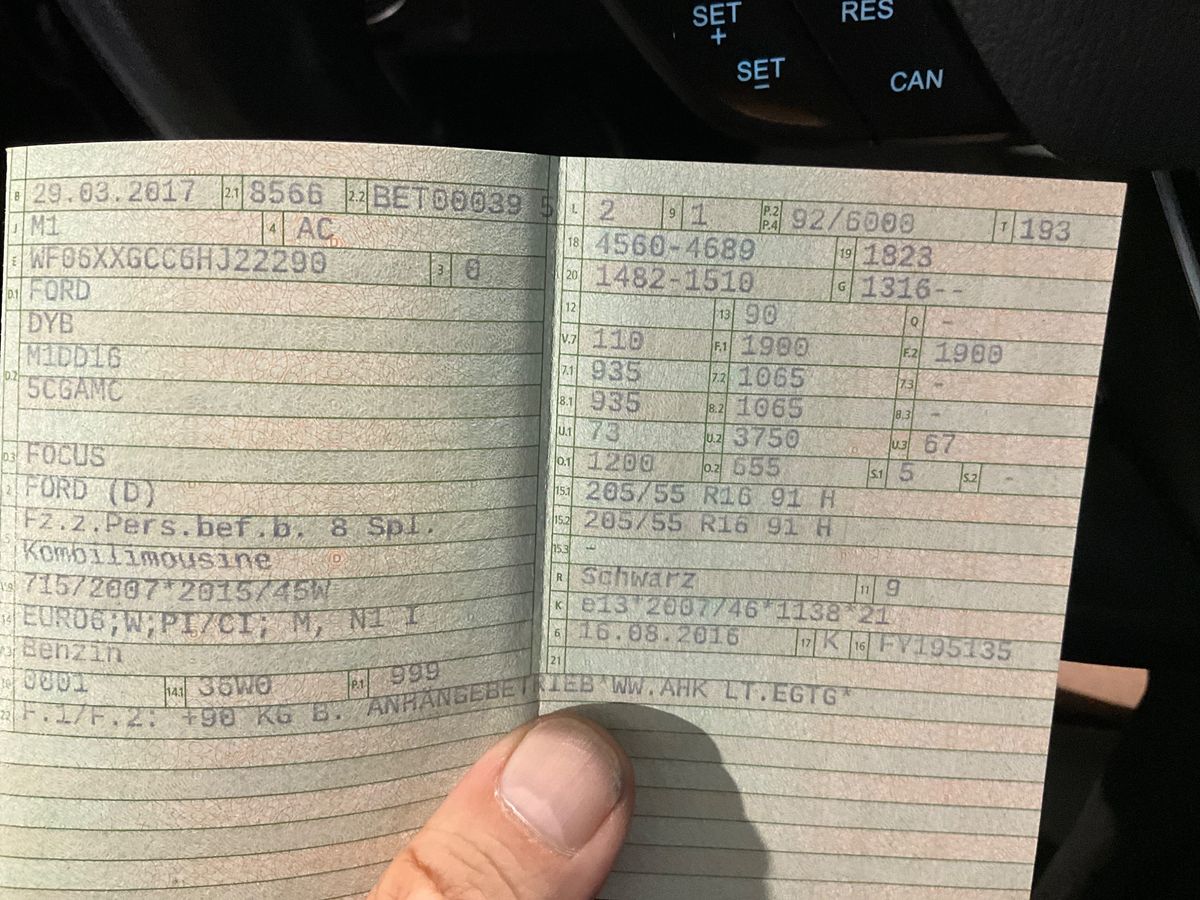 SET
+
RES
SET
–
CAN
B 29.03.2017 2.1 8566 2.2 BET00039 5
J M1 4 AC
E WF06XXGCC6HJ22290 3 0
D.1 FORD
DYB
D.2 M1DD16
5CGAMC
D.3 FOCUS
2 FORD (D)
Fz.z.Pers.bef.b. 8 Spl.
5 Kombilimousine
V.9 715/2007*2015/45W
14 EURO6;W;PI/CI; M, N1 I
P.3 Benzin
10 0001 14.1 36W0 P.1 999
22 F.1/F.2: +90 KG B. ANHÄNGEBETRIEB*WW.AHK LT.EGTG*
L 2 9 1 P.2 P.4 92/6000 T 193
18 4560-4689 19 1823
20 1482-1510 G 1316--
12 13 90 Q -
V.7 110 F.1 1900 F.2 1900
7.1 935 7.2 1065 7.3 -
8.1 935 8.2 1065 8.3 -
U.1 73 U.2 3750 U.3 67
O.1 1200 O.2 655 S.1 5 S.2 -
15.1 205/55 R16 91 H
15.2 205/55 R16 91 H
15.3 -
R Schwarz 11 9
K e13*2007/46*1138*21
6 16.08.2016 17 K 16 FY195135
21